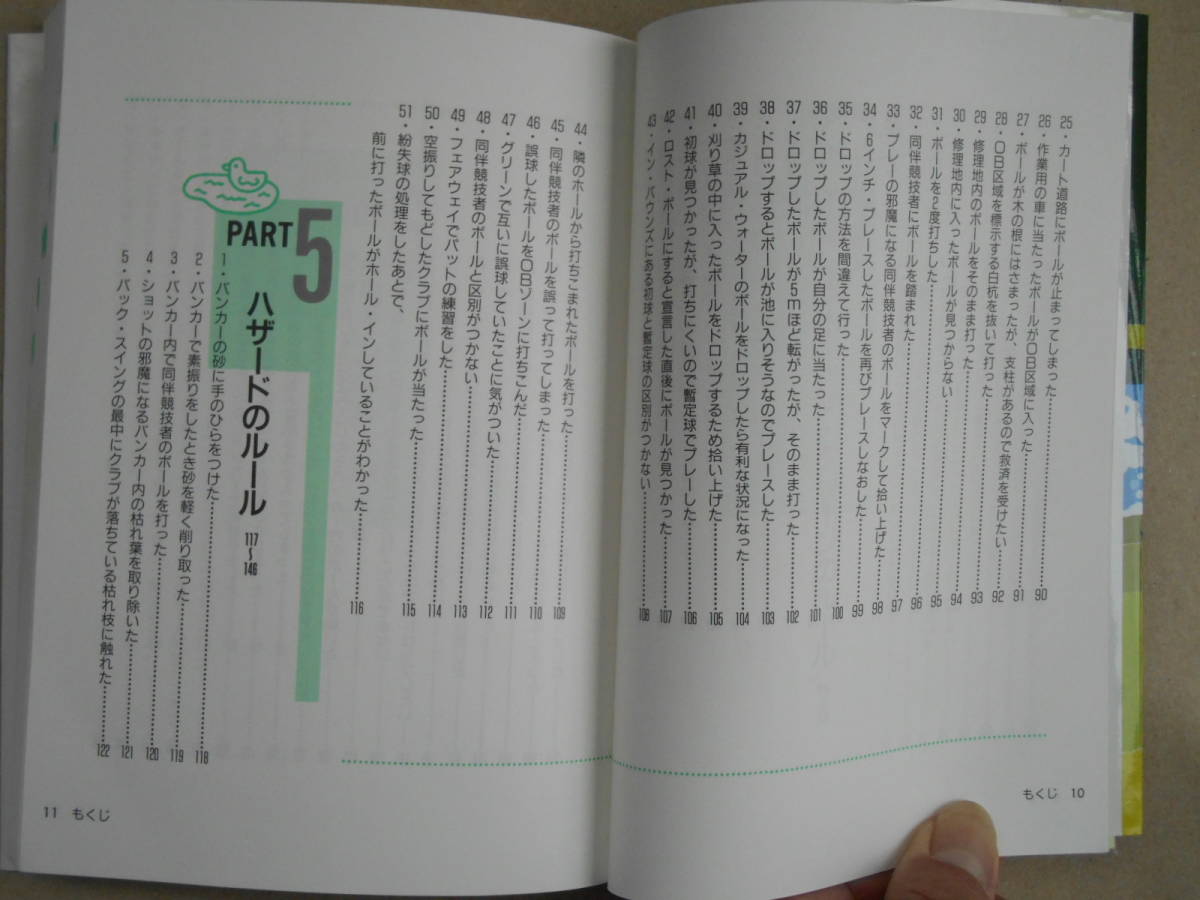 25・カート道路にボールが止まってしまった……90
26・作業用の車に当たったボールがOB区域に入った……91
27・ボールが木の根にはさまったが、支柱があるので救済を受けたい……92
28・OB区域を標示する白杭を抜いて打った……93
29・修理地内のボールをそのまま打った……94
30・修理地内に入ったボールが見つからない……95
31・ボールを2度打ちした……96
32・同伴競技者にボールを踏まれた……97
33・プレーの邪魔になる同伴競技者のボールをマークして拾い上げた……98
34・6インチ・プレースしたボールを再びプレースしなおした……99
35・ドロップの方法を間違えて行った……100
36・ドロップしたボールが自分の足に当たった……101
37・ドロップしたボールが5mほど転がったが、そのまま打った……102
38・ドロップするとボールが池に入りそうなのでプレースした……103
39・カジュアル・ウォーターのボールをドロップしたら有利な状況になった……104
40・刈り草の中に入ったボールをドロップするため拾い上げた……105
41・初球が見つかったが、打ちにくいので暫定球でプレーした……106
42・ロスト・ボールにすると宣言した直後にボールが見つかった……107
43・イン・バウンズにある初球と暫定球の区別がつかない……108
もくじ 10
44・隣のホールから打ちこまれたボールを打った……109
45・同伴競技者のボールを誤って打ってしまった……110
46・誤球したボールをOBゾーンに打ちこんだ……111
47・グリーンで互いに誤球していたことに気がついた……112
48・同伴競技者のボールと区別がつかない……113
49・フェアウェイでパットの練習をした……114
50・空振りしてもどしたクラブにボールが当たった……115
51・紛失球の処理をしたあとで、
前に打ったボールがホール・インしていることがわかった……116
PART 5
ハザードのルール 117〜146
1・バンカーの砂に手のひらをつけた……118
2・バンカーで素振りをしたとき砂を軽く削り取った……119
3・バンカー内で同伴競技者のボールを打った……120
4・ショットの邪魔になるバンカー内の枯れ葉を取り除いた……121
5・バック・スイングの最中にクラブが落ちている枯れ枝に触れた……122
11 もくじ